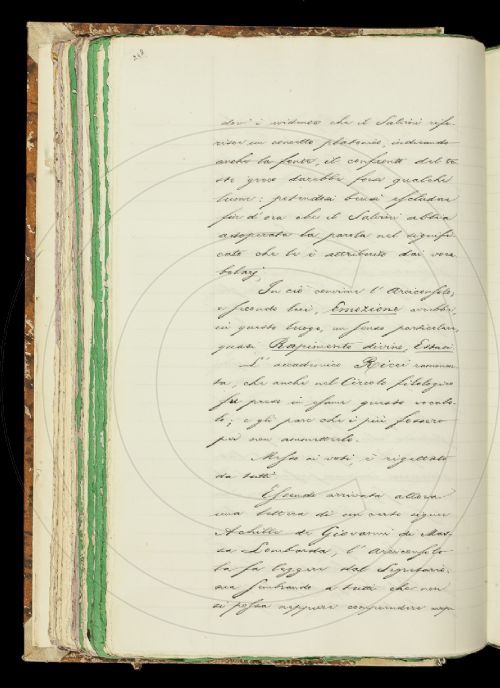 248
dov' è evidente che il Salvini rife-
risce un concetto platonico, indicando
anche la fonte, il confronto del te-
sto greco darebbe forse qualche
lume: potendosi bensì escludere
fin d'ora che il Salvini abbia
adoperata la parola nel signifi-
cato che le è attribuito dai voca-
bolarj.
In ciò conviene l'Arciconsolo,
e secondo lui, Emozione avrebbe
in questo luogo, un senso particolare,
quasi Rapimento divino, Estasi.
L'accademico Ricci rammen-
ta, che anche nel Circolo filologico
fu preso in esame questo vocabo-
lo; e gli pare che i più fossero
per non ammetterlo.
Messo ai voti, è rigettato
da tutti.
Essendo arrivata allora
una lettera di un certo signor
Achille de Giovanni di
Lombarda, l'Arciconsolo
la fa leggere dal Segretario;
ma sembrando a tutti che non
si possa neppure comprendere